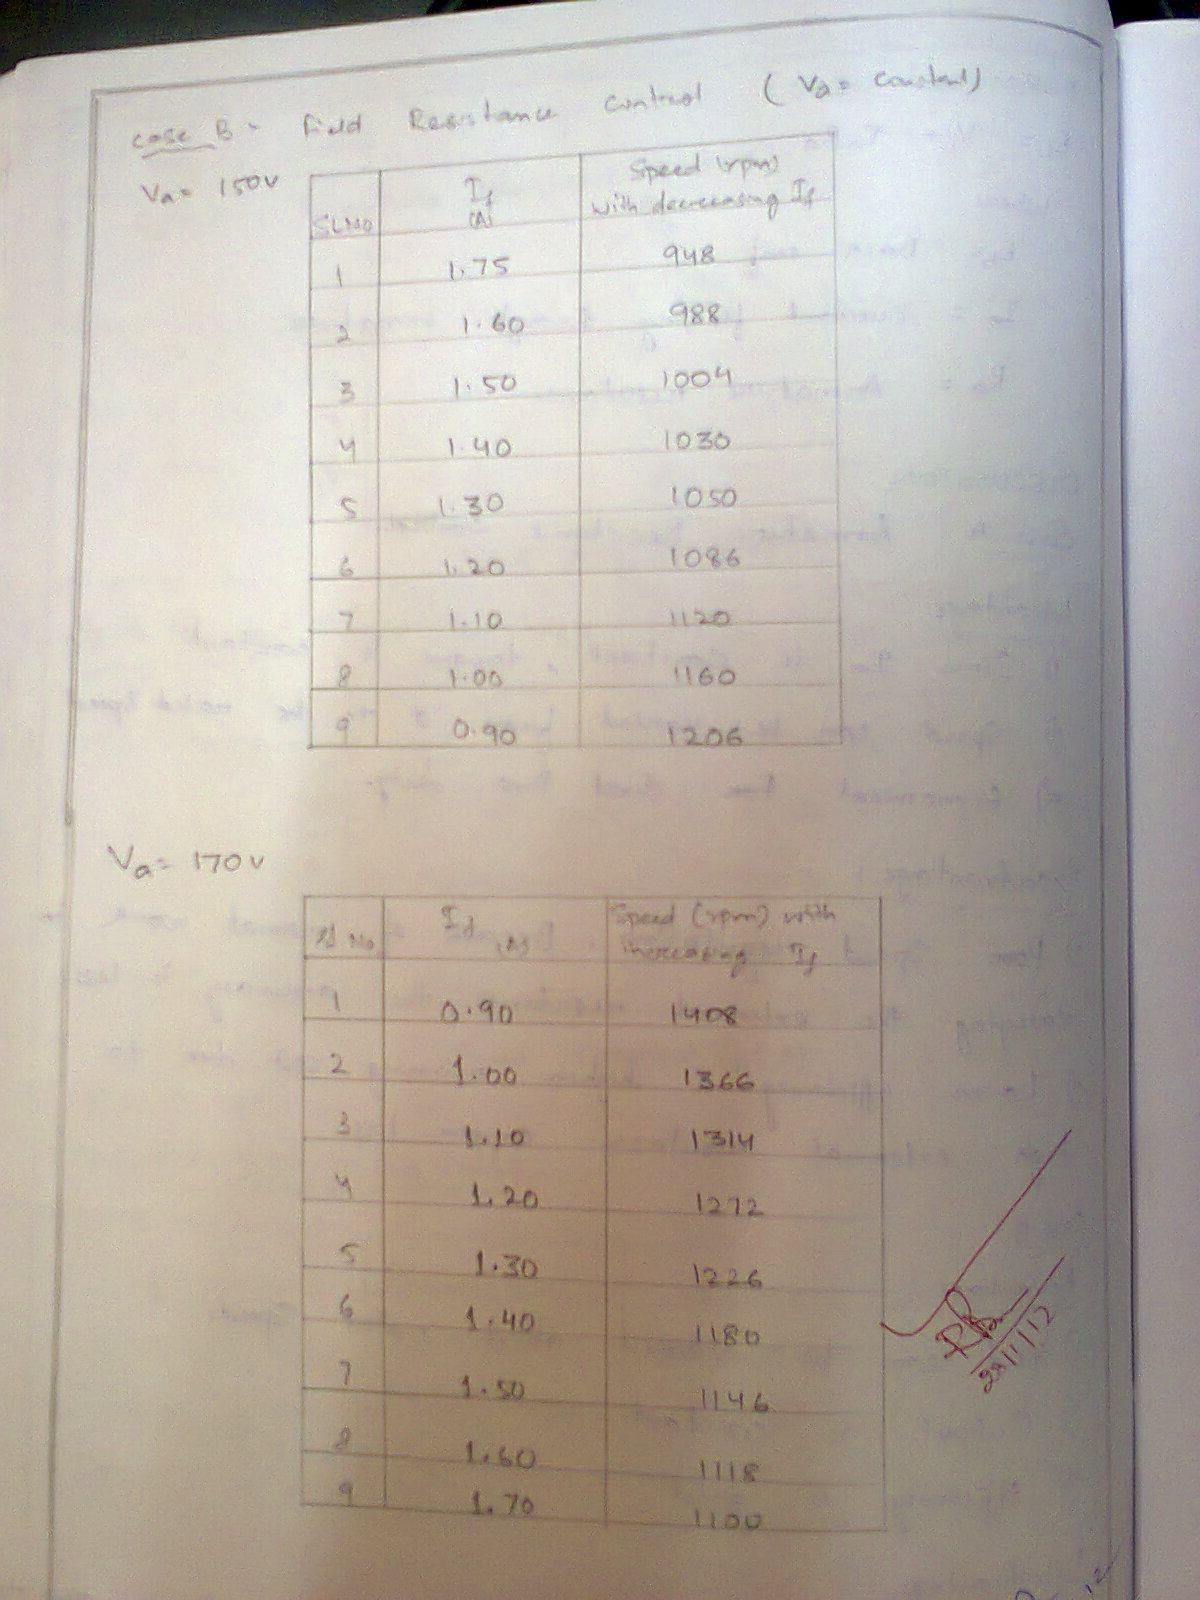 Case B - Field Resistance Control (Va = constant)
Va = 150V
SL.No If (A) Speed (rpm) with decreasing If
1 1.75 948
2 1.60 988
3 1.50 1004
4 1.40 1030
5 1.30 1050
6 1.20 1086
7 1.10 1120
8 1.00 1160
9 0.90 1206
Va = 170V
Sl No If (A) Speed (rpm) with increasing If
1 0.90 1408
2 1.00 1366
3 1.10 1314
4 1.20 1272
5 1.30 1226
6 1.40 1180
7 1.50 1146
8 1.60 1118
9 1.70 1100